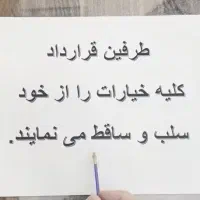 طرفین قرارداد
کلیه خیارات را از خود
سلب و ساقط می نمایند.